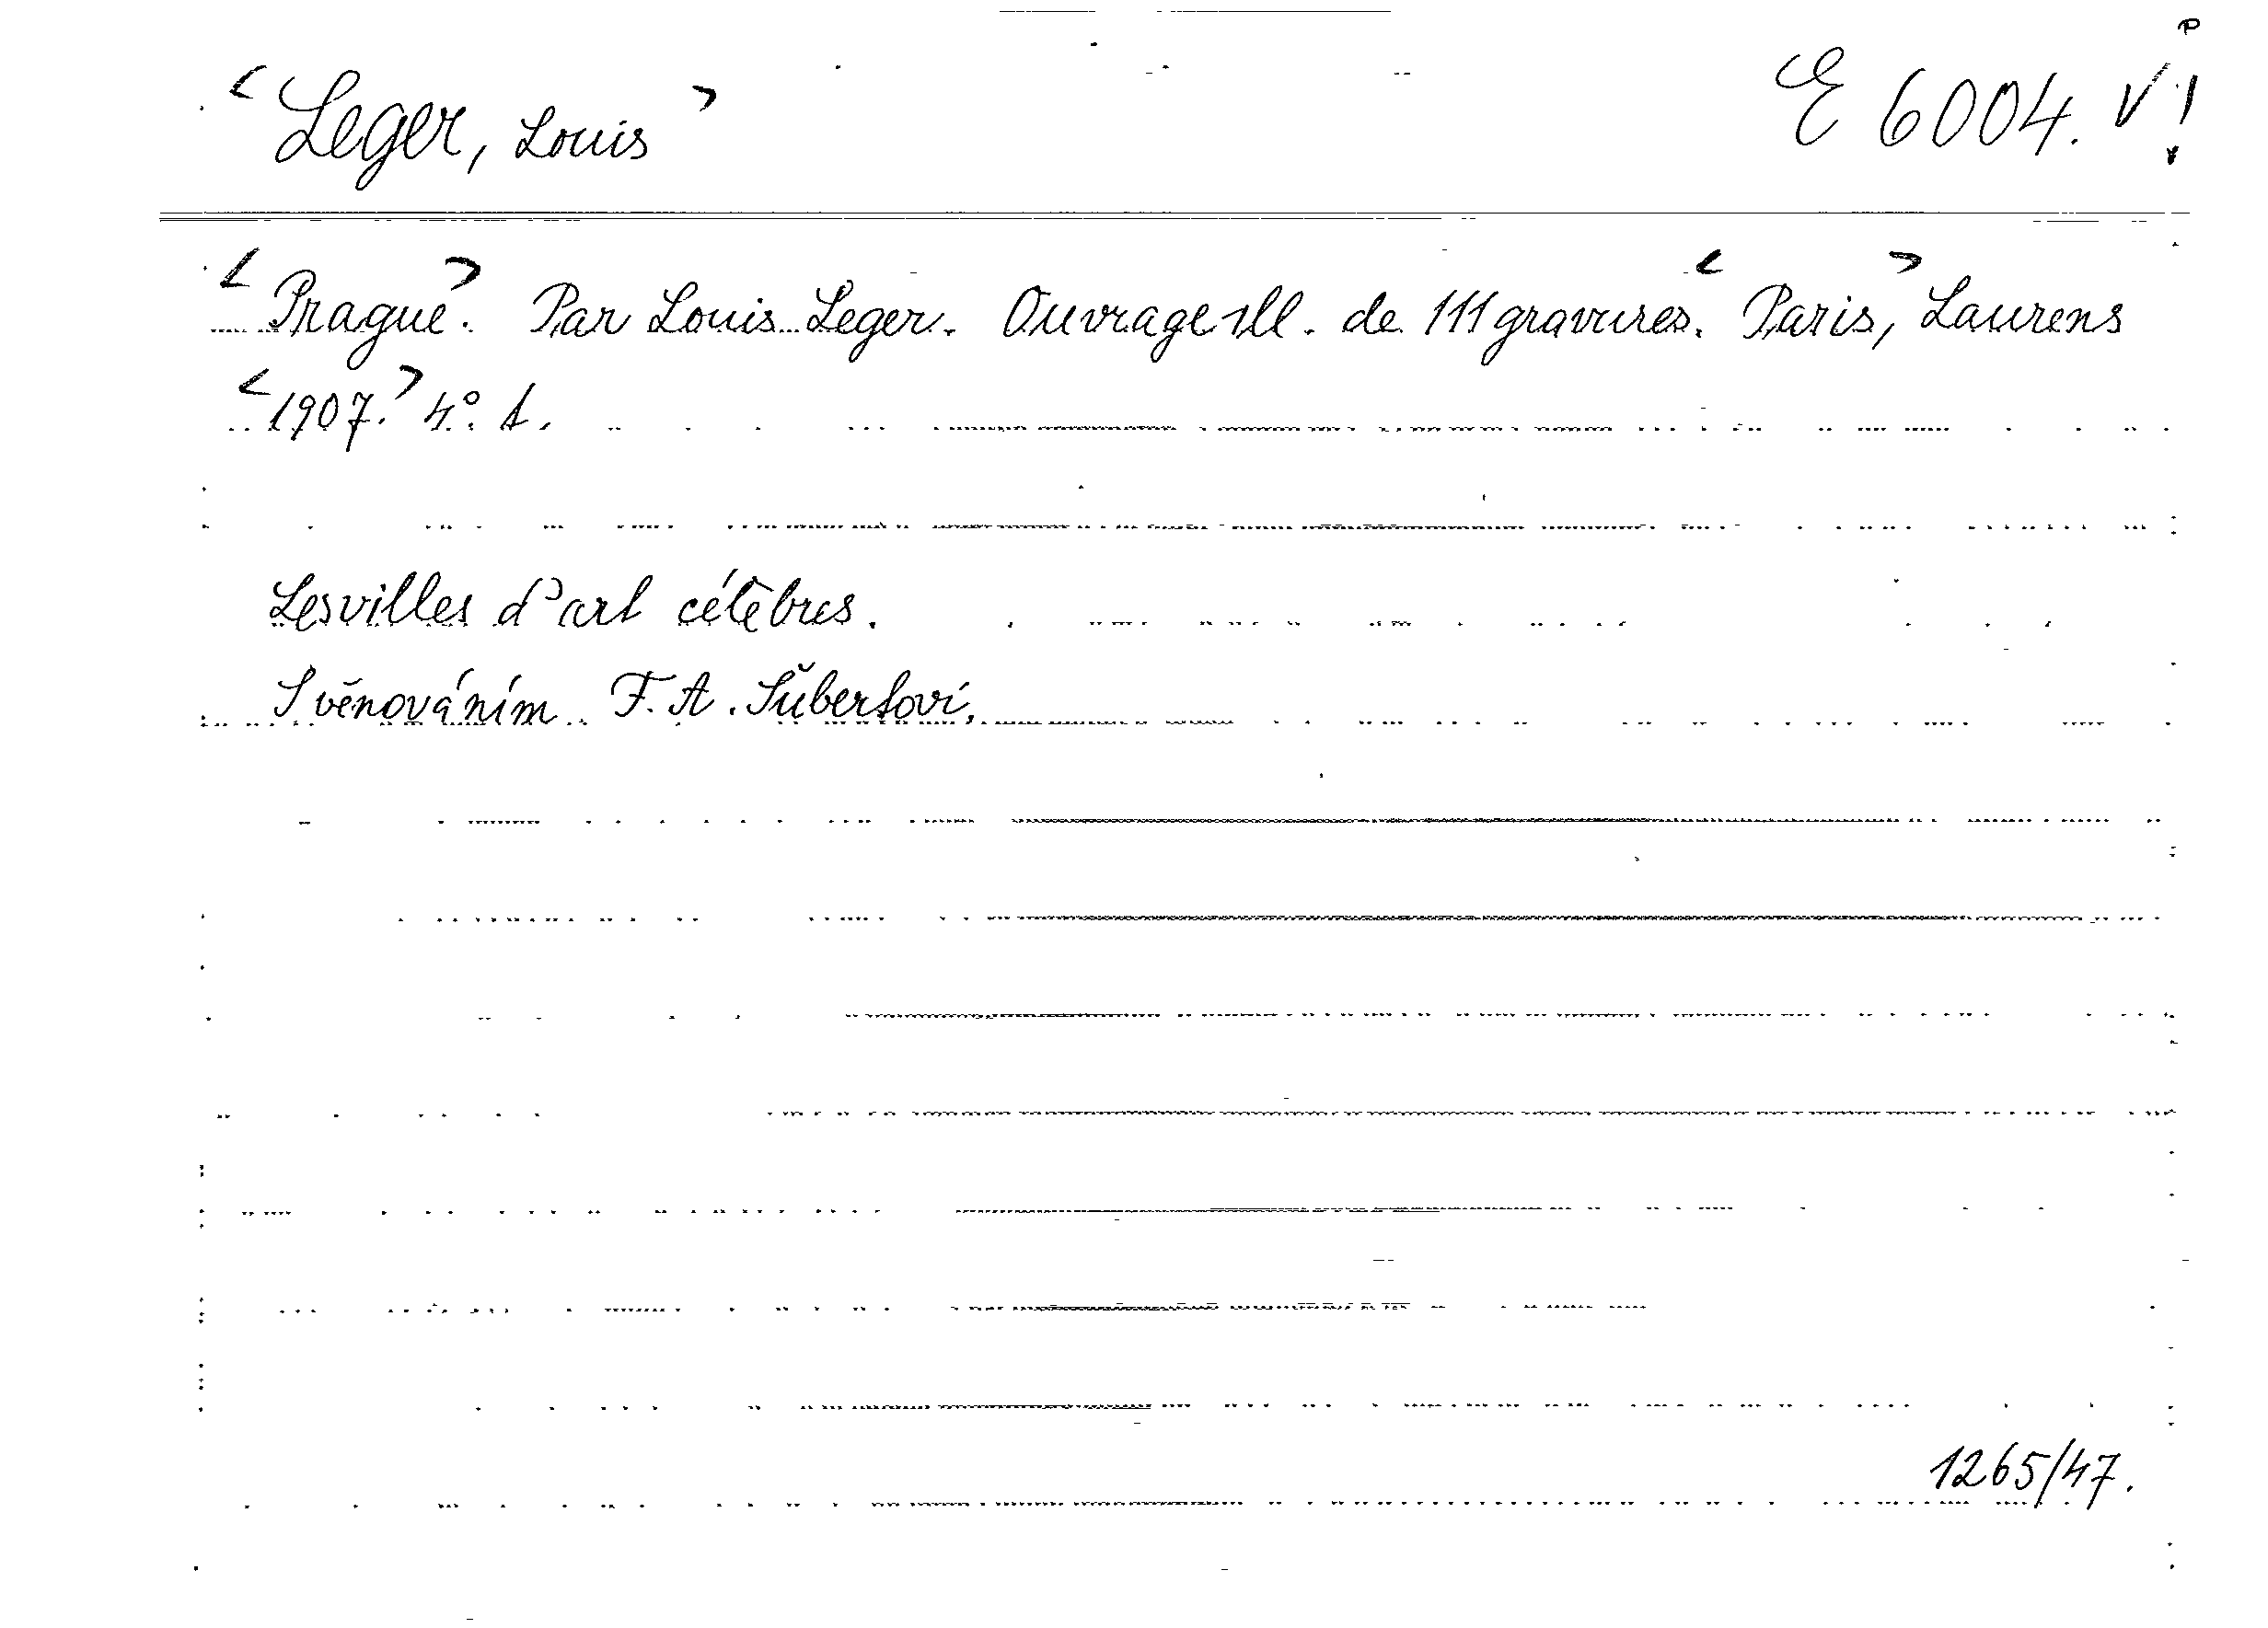 <Leger, Louis> E 6004. V !
<Prague>. Par Louis Leger. Ouvrage ill. de 111 gravures. <Paris,> Laurens
<1907.> 4°. 1.
Les villes d'art célèbres.
S věnováním F. A. Šubertovi.
1265/47.